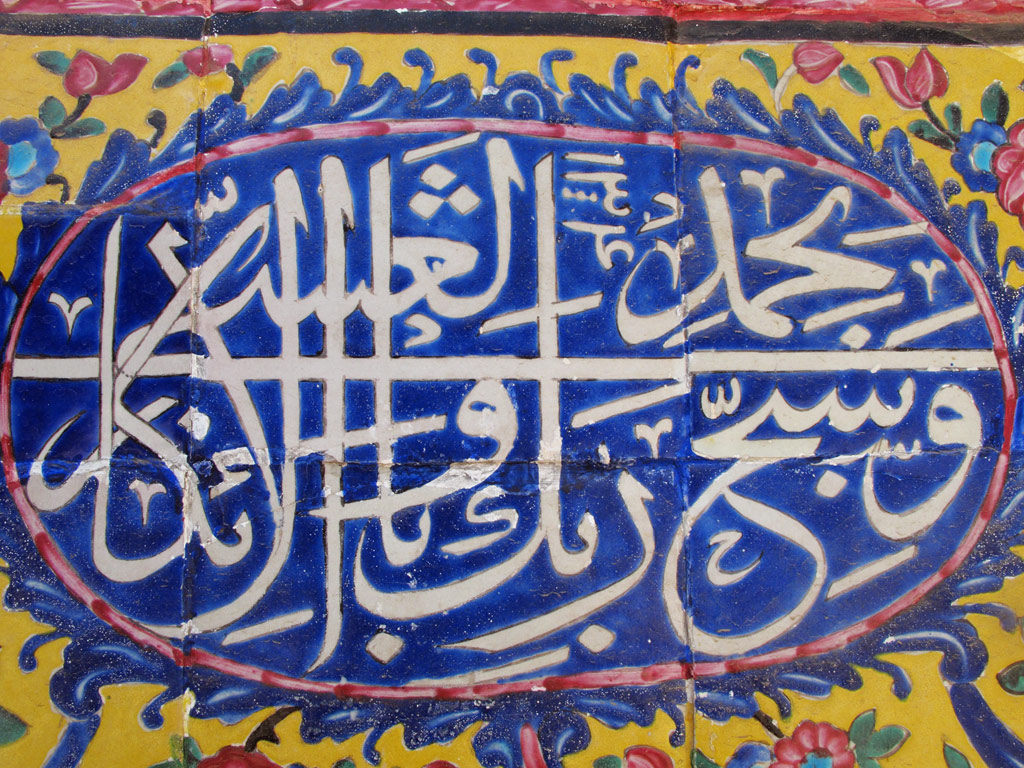 وسبح بحمد ربك بالعشی والابکار